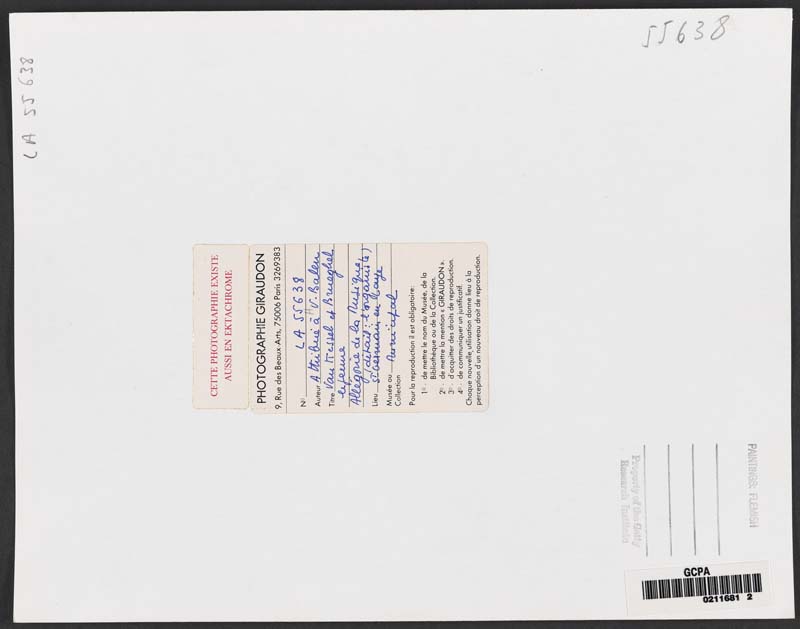 55638
LA 55638
CETTE PHOTOGRAPHIE EXISTE
AUSSI EN EKTACHROME
PHOTOGRAPHIE GIRAUDON
9, Rue des Beaux-Arts, 75006 Paris 3269383
N° LA 55638
Auteur Attribué à H V. Balen
Titre Van Kessel et Brueghel
le jeune
Allégorie de la Musique
(détail: l'organiste)
Lieu St Germain en Laye
Musée ou Municipal
Collection
Pour la reproduction il est obligatoire:
1° - de mettre le nom du Musée, de la
Bibliothèque ou de la Collection.
2° - de mettre la mention « GIRAUDON ».
3° - d'acquitter des droits de reproduction.
4° - de communiquer un justificatif.
Chaque nouvelle utilisation donne lieu à la
perception d'un nouveau droit de reproduction.
PAINTINGS: FLEMISH
Property of the Getty
Research Institute
GCPA
0211681 2